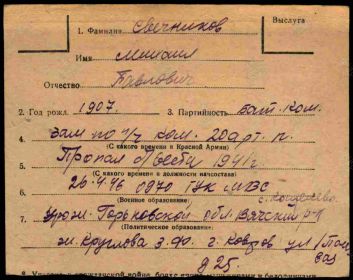 Выслуга
1. Фамилия Свечников
Имя Михаил
Отчество Павлович
2. Год рожд. 1907. 3. Партийность Бат. ком.
4. Зам по п/ч ком. 20 арт. п.
(С какого времени в Красной Армии)
5. Пропал 1941 г
(С какого времени в должности начсостава)
6. 26.4.46 0970 ГУК
(Военное образование)
7. урож. Горьковской обл. Вачский р-н
(Политическое образование)
ж. Круглова З.Ф. г. Ковров ул
д 25.